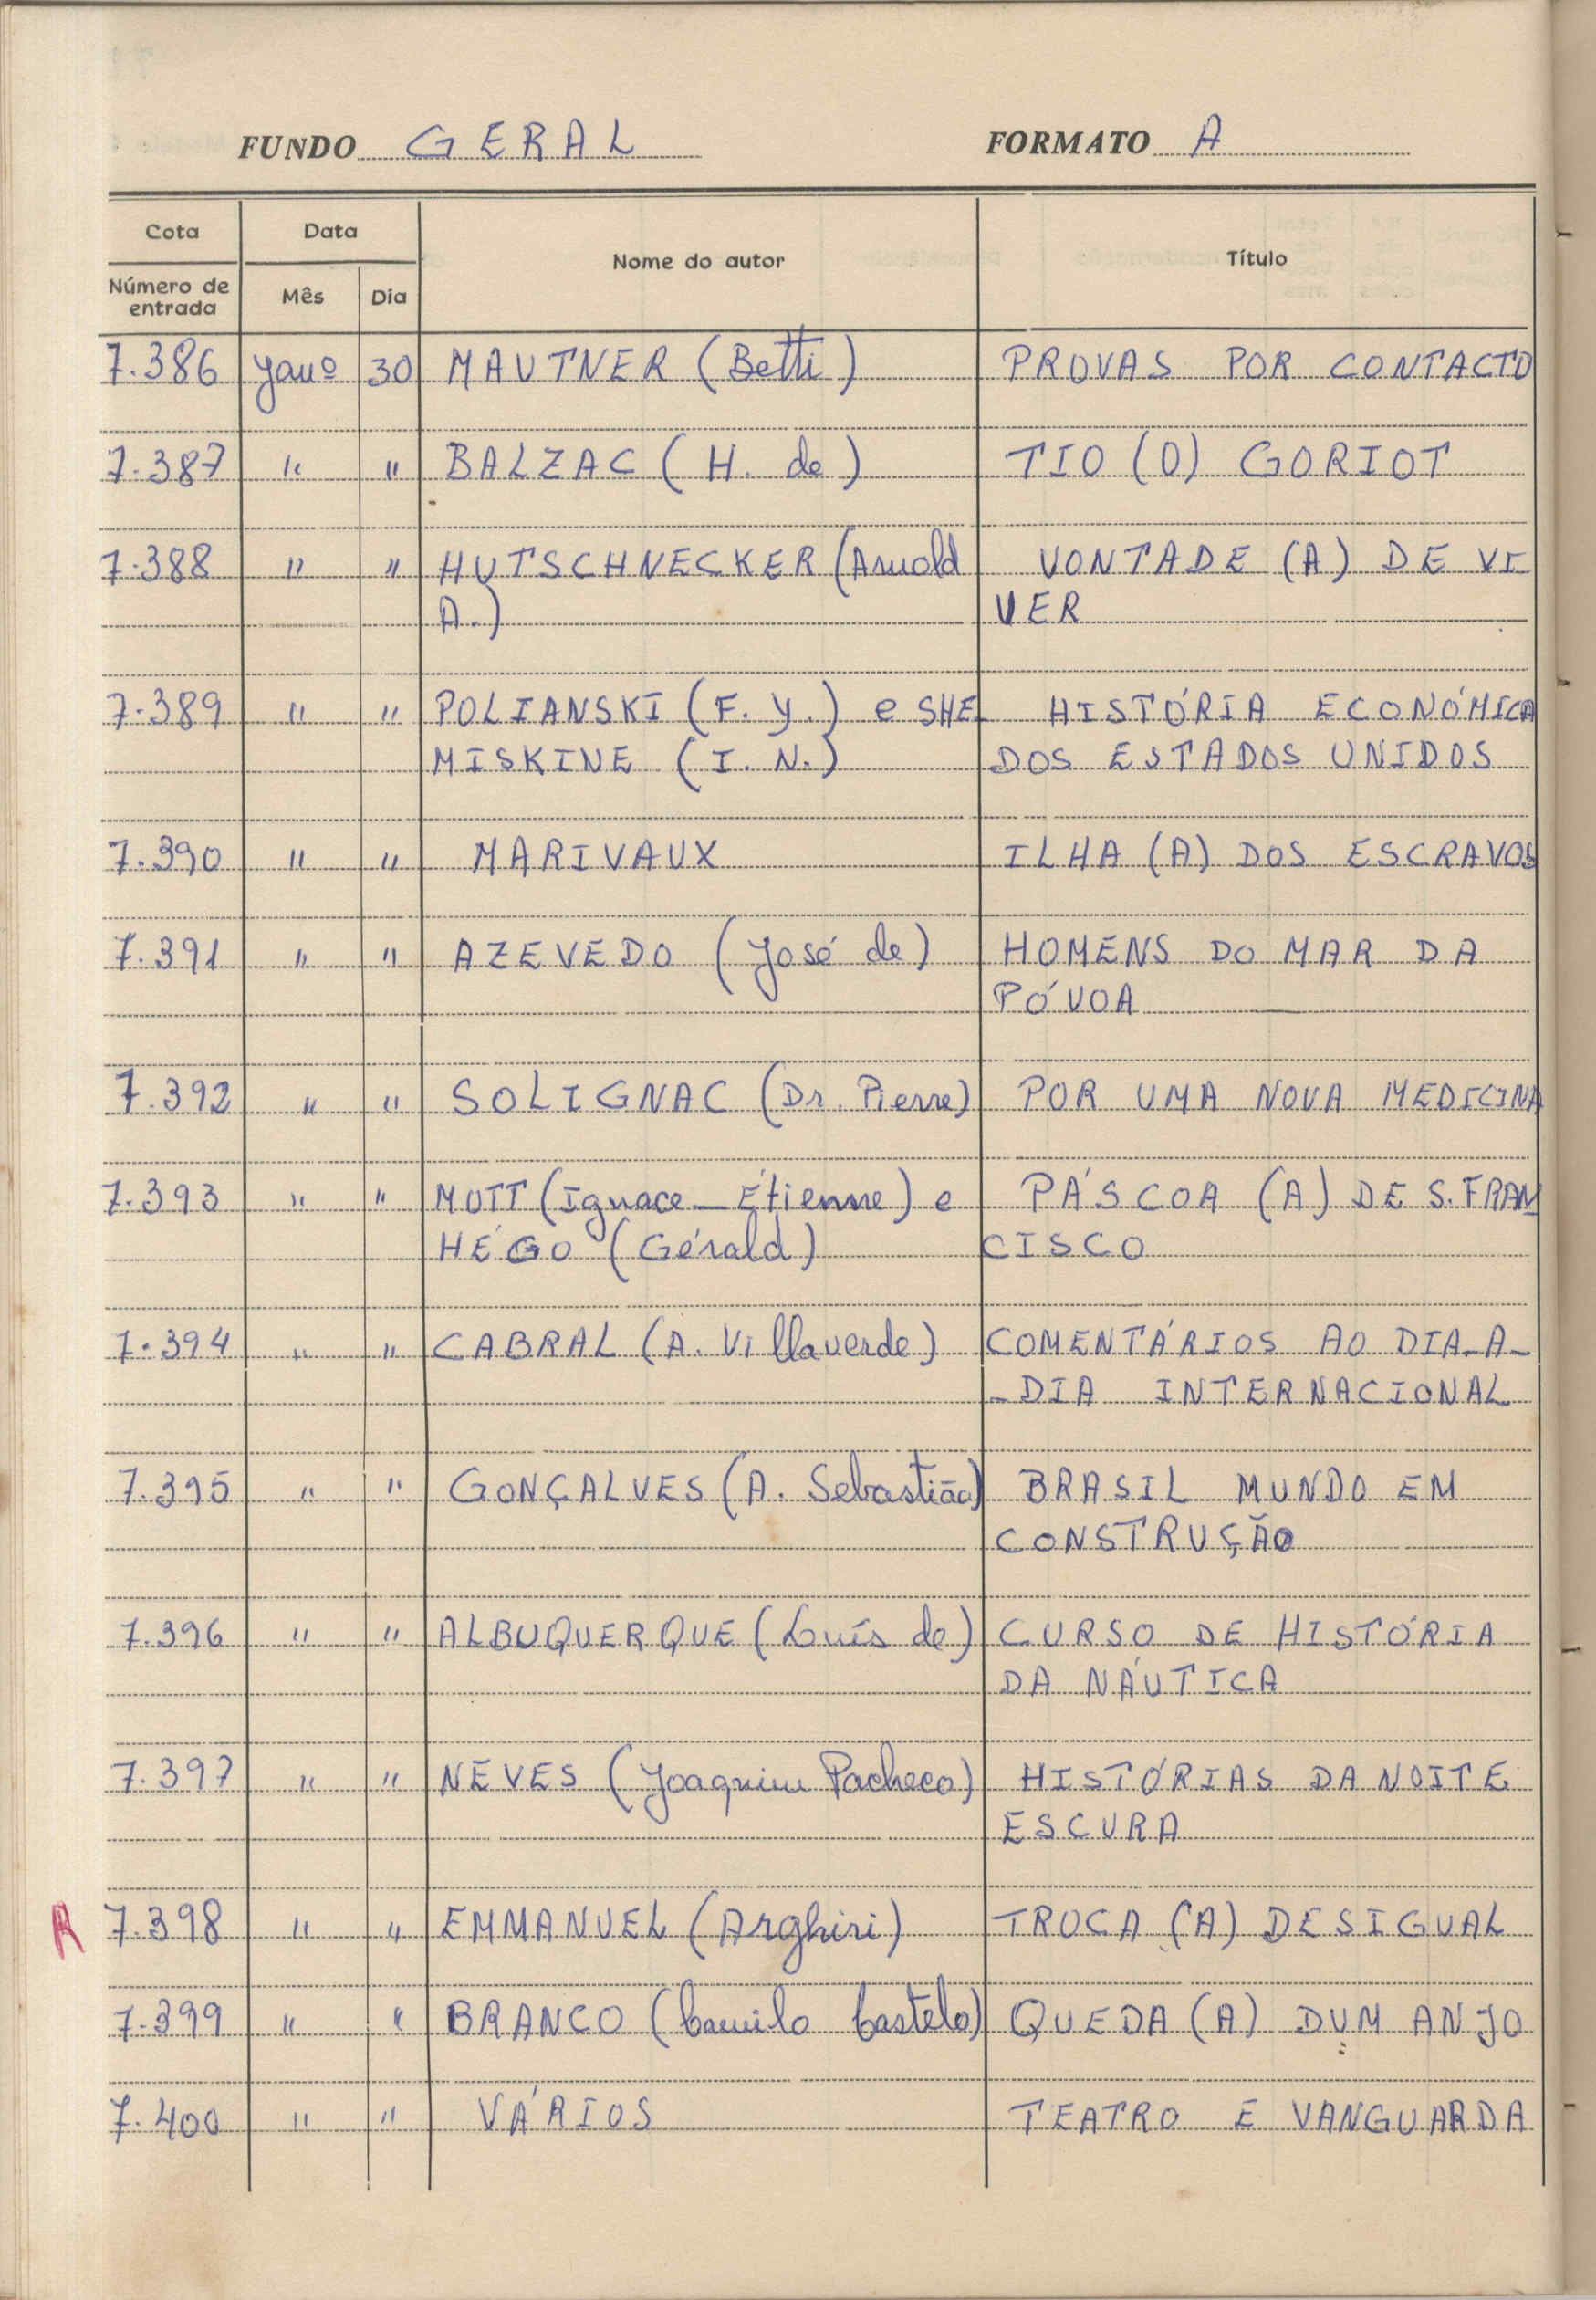 FUNDO GERAL FORMATO A
Cota Data Nome do autor Título
Número de entrada Mês Dia
7.386 Janº 30 MAUTNER (Betti) PROVAS POR CONTACTO
7.387 " " BALZAC (H. de) TIO (O) GORIOT
7.388 " " HUTSCHNECKER (Arnold VONTADE (A) DE VI
A.) VER
7.389 " " POLIANSKI (F. Y.) e SHE HISTÓRIA ECONÓMICA
MISKINE (I. N.) DOS ESTADOS UNIDOS
7.390 " " MARIVAUX ILHA (A) DOS ESCRAVOS
7.391 " " AZEVEDO (José de) HOMENS DO MAR DA
PÓVOA
7.392 " " SOLIGNAC (Dr. Pierre) POR UMA NOVA MEDICINA
7.393 " " MOTT (Ignace-Étienne) e PÁSCOA (A) DE S. FRAN
HÉGO (Gérald) CISCO
7.394 " " CABRAL (A. Villaverde) COMENTÁRIOS AO DIA-A-
-DIA INTERNACIONAL
7.395 " " GONÇALVES (A. Sebastião) BRASIL MUNDO EM
CONSTRUÇÃO
7.396 " " ALBUQUERQUE (Luís de) CURSO DE HISTÓRIA
DA NÁUTICA
7.397 " " NEVES (Joaquim Pacheco) HISTÓRIAS DA NOITE
ESCURA
R 7.398 " " EMMANUEL (Arghiri) TROCA (A) DESIGUAL
7.399 " " BRANCO (Camilo Castelo) QUEDA (A) DUM ANJO
7.400 " " VÁRIOS TEATRO E VANGUARDA